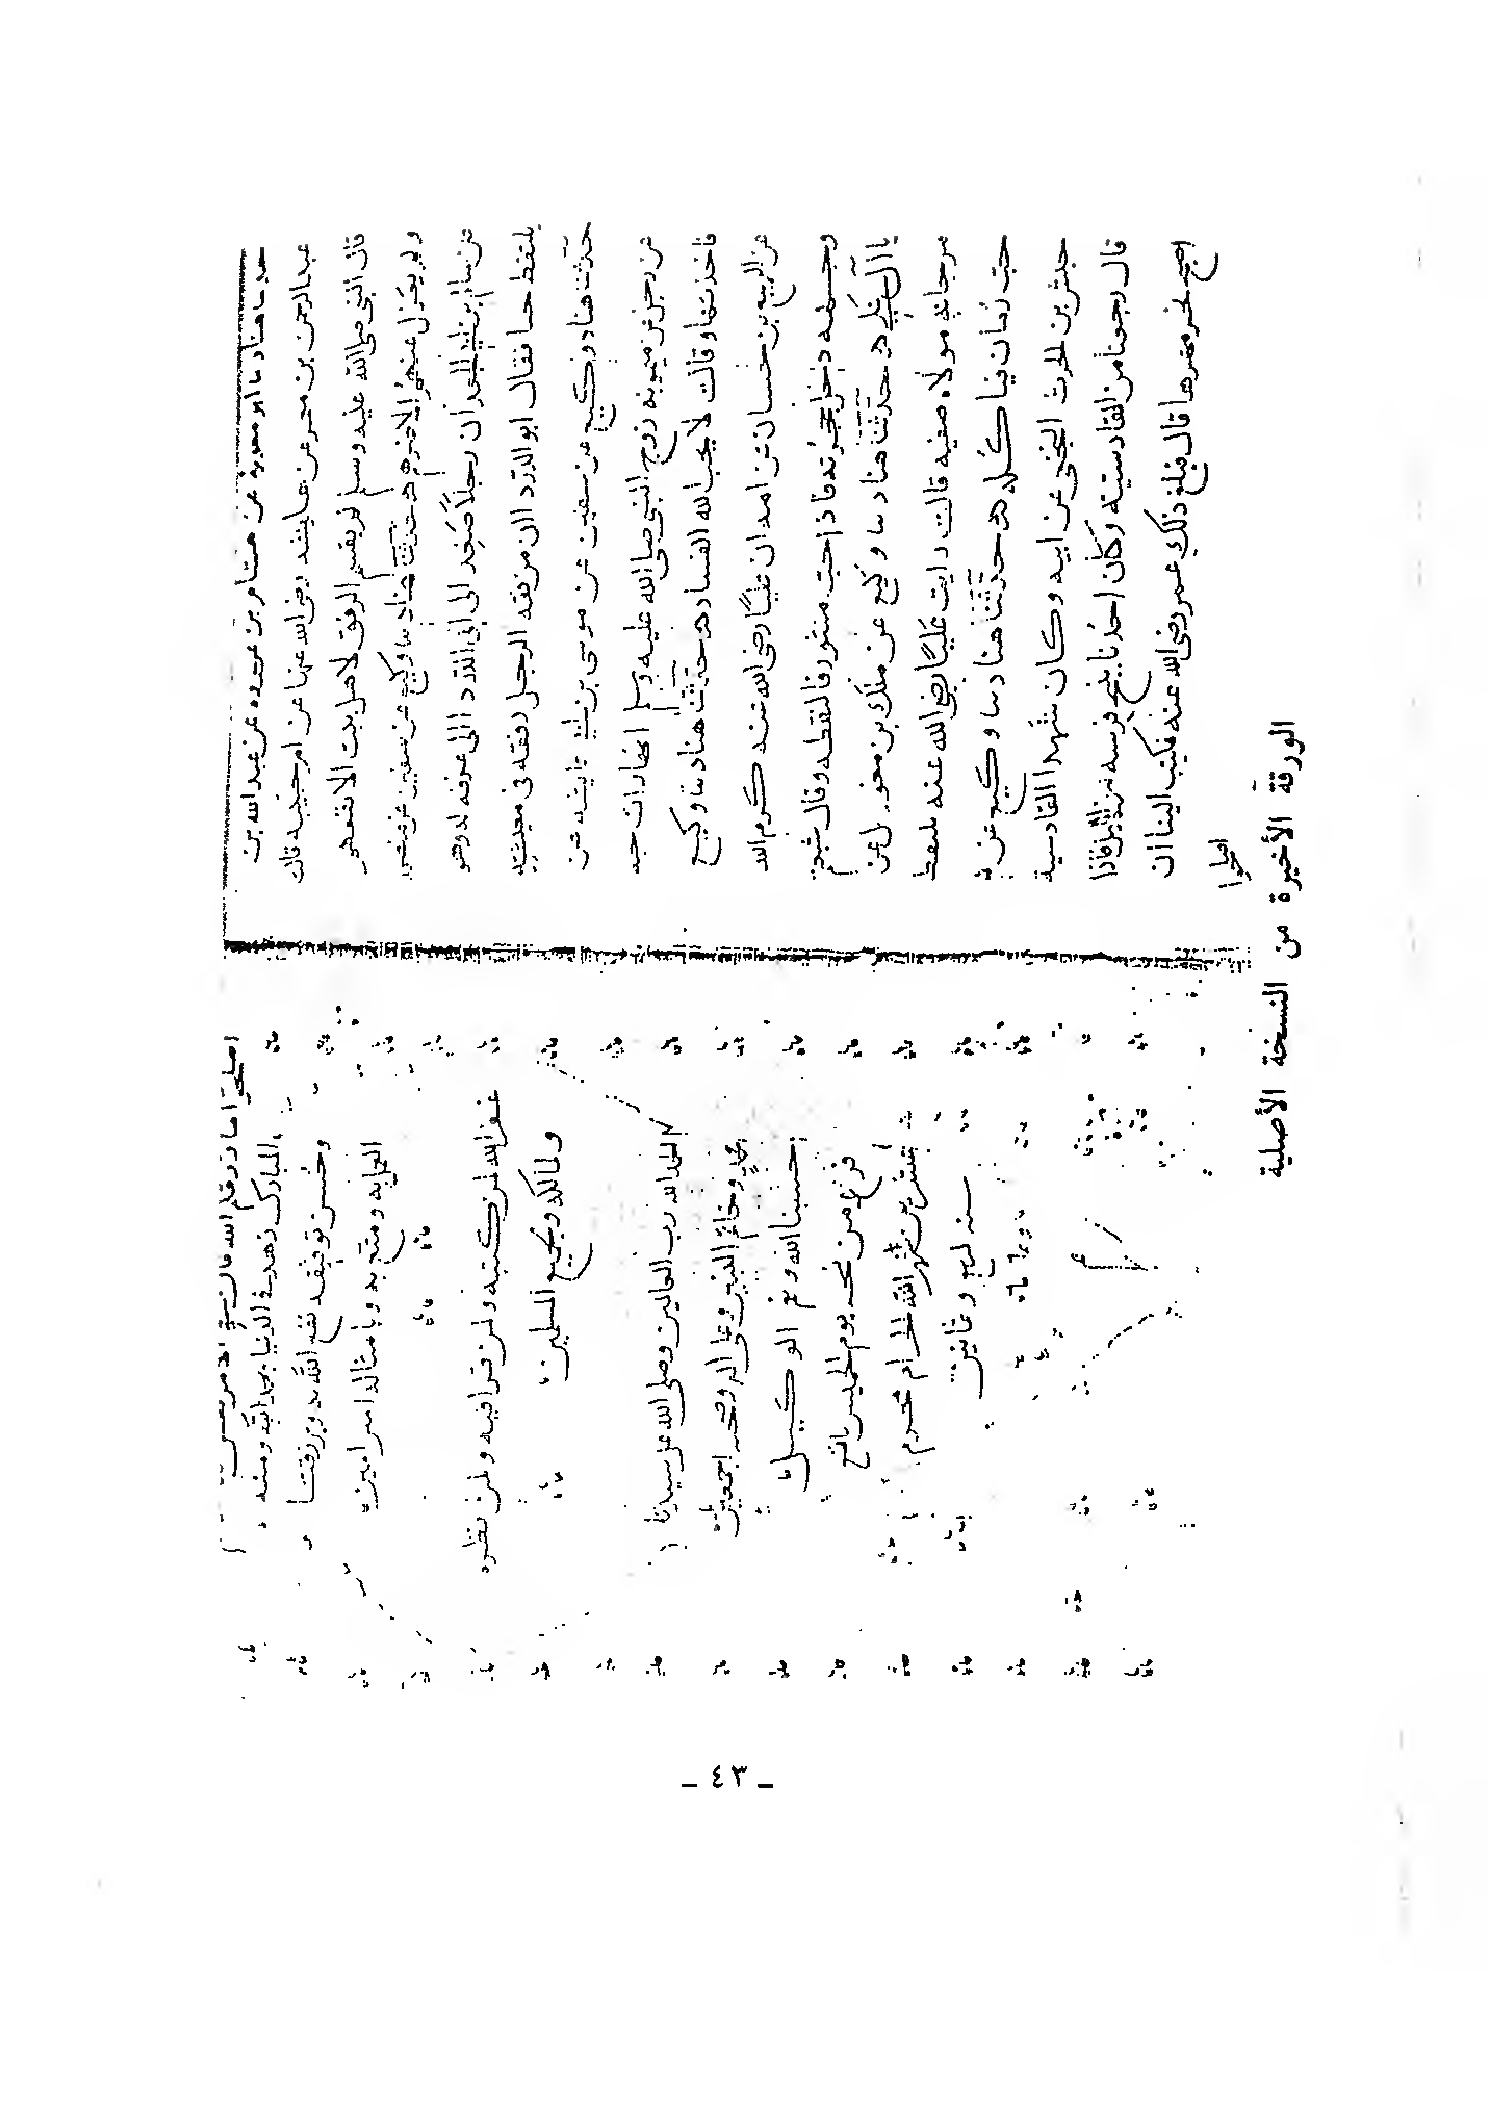 حدثنا هناد نا ابو معوية عن هشام بن عروه عن عبد الله بن
عبد الرحمن بن معمر عن عايشه رضى الله عنها عن ام حبيبه قالت
قال النبى صلى الله عليه وسلم لم يقسم الرفق لاهل بيت الا نفعهم
ولم يعزل عنهم الا ضرهم حدثنا هناد نا وكيع عن سفين عن
عن سالم بن ابى الجعد ان رجلا صعد الى ابى الدرد الى غرفه له وهو
يلتقط حبا فقال ابو الدرد ا ان من فقه الرجل رفقه فى معيشته
حدثنا هناد نا وكيع عن سفين عن موسى بن ابى عايشه عن
عن رجل عن ميمونه زوج النبى صلى الله عليه وسلم انها رات حبه
فاخذتها وقالت لا يحب الله الفساد حدثنا هناد نا وكيع
عن الربيع بن حسان عن امه ان عليا رضى الله عنه كرم الله
وجهه دخل حجرته فاذا حب منثور فالتقطه وقال شبعتم
يا آل على حدثنا هناد نا وكيع عن ملك بن مغول عن
مرجانه مولاه صفيه قالت رايت عليا رضى الله عنه يلتقط
حب رمان فياكله حدثنا هناد نا وكيع عن
حنش بن الحرث النخعى عن ابيه وكان شهد القادسية
قال رجعنا من القادسية وكان احدنا ينتج فرسه من الليل فاذا
اصبح نحر مهرها قال فبلغ ذلك عمر رضى الله عنه فكتب الينا ان
اصلحوا
اصلحوا ما رزقكم الله فان فى الامر نفس
المبارك زهد فى الدنيا بحمد الله ومنه
وحسن توفيقه نفع الله به ويرزقنا
العمل به ومتع به وبامثاله امين امين
غفر الله لمن كتبه ولمن قرا فيه ولمن نظره
ولمالكه وجميع المسلمين
الحمد لله رب العالمين وصلى الله على سيدنا
محمد وخاتم النبيين وعلى اله وصحبه اجمعين
حسبنا الله ونعم الوكيل
فرغ من نسخه يوم الخميس تاسع
عشرين شهر الله الحرام محرم
سنه اربع وثمانين
الورقة الأخيرة من النسخة الأصلية
ـ ٤٣ ـ